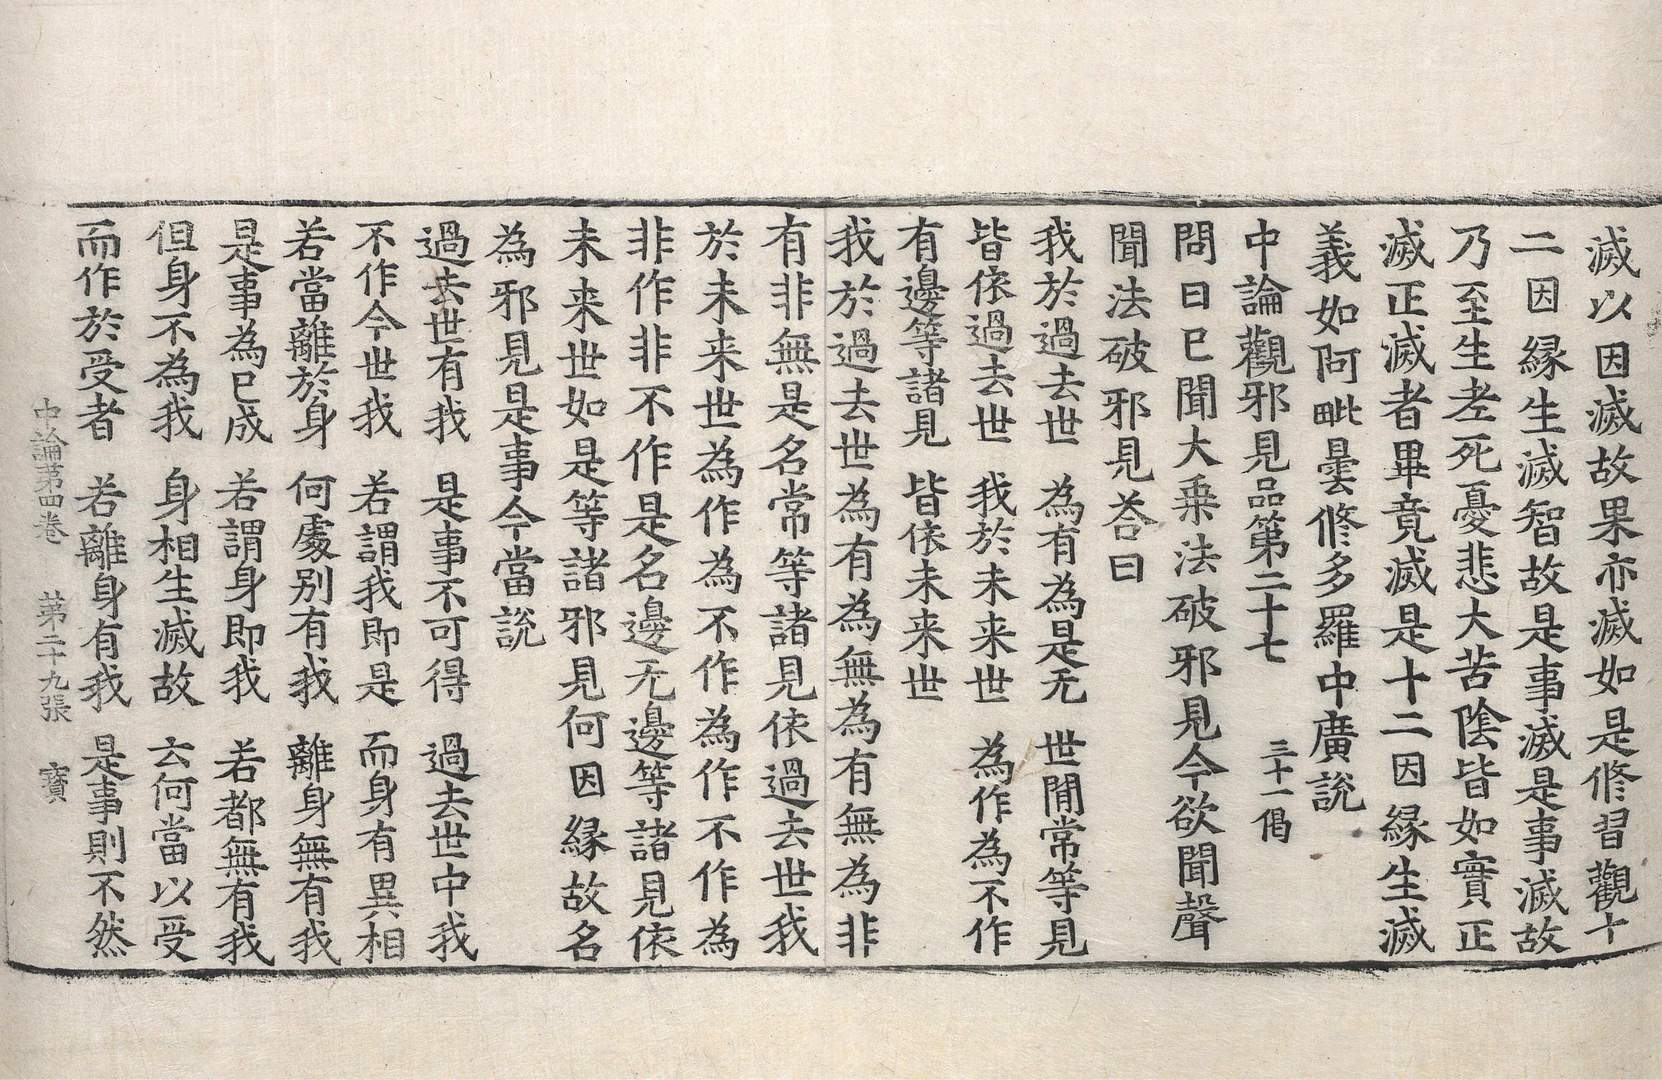 滅以因滅故果亦滅如是修習觀十
二因緣生滅智故是事滅是事滅故
乃至生老死憂悲大苦陰皆如實正
滅正滅者畢竟滅是十二因緣生滅
義如阿毗曇修多羅中廣說
中論觀邪見品第二十七 三十一偈
問曰已聞大乗法破邪見今欲聞聲
聞法破邪見荅曰
我於過去世 為有為是无 世閒常等見
皆依過去世 我於未来世 為作為不作
有邊等諸見 皆依未来世
我於過去世為有為無為有無為非
有非無是名常等諸見依過去世我
於未来世為作為不作為作不作為
非作非不作是名邊无邊等諸見依
未来世如是等諸邪見何因緣故名
為邪見是事今當說
過去世有我 是事不可得 過去世中我
不作今世我 若謂我即是 而身有異相
若當離於身 何處別有我 離身無有我
是事為已成 若謂身即我 若都無有我
但身不為我 身相生滅故 云何當以受
而作於受者 若離身有我 是事則不然
中論第四卷 第二十九張 寶